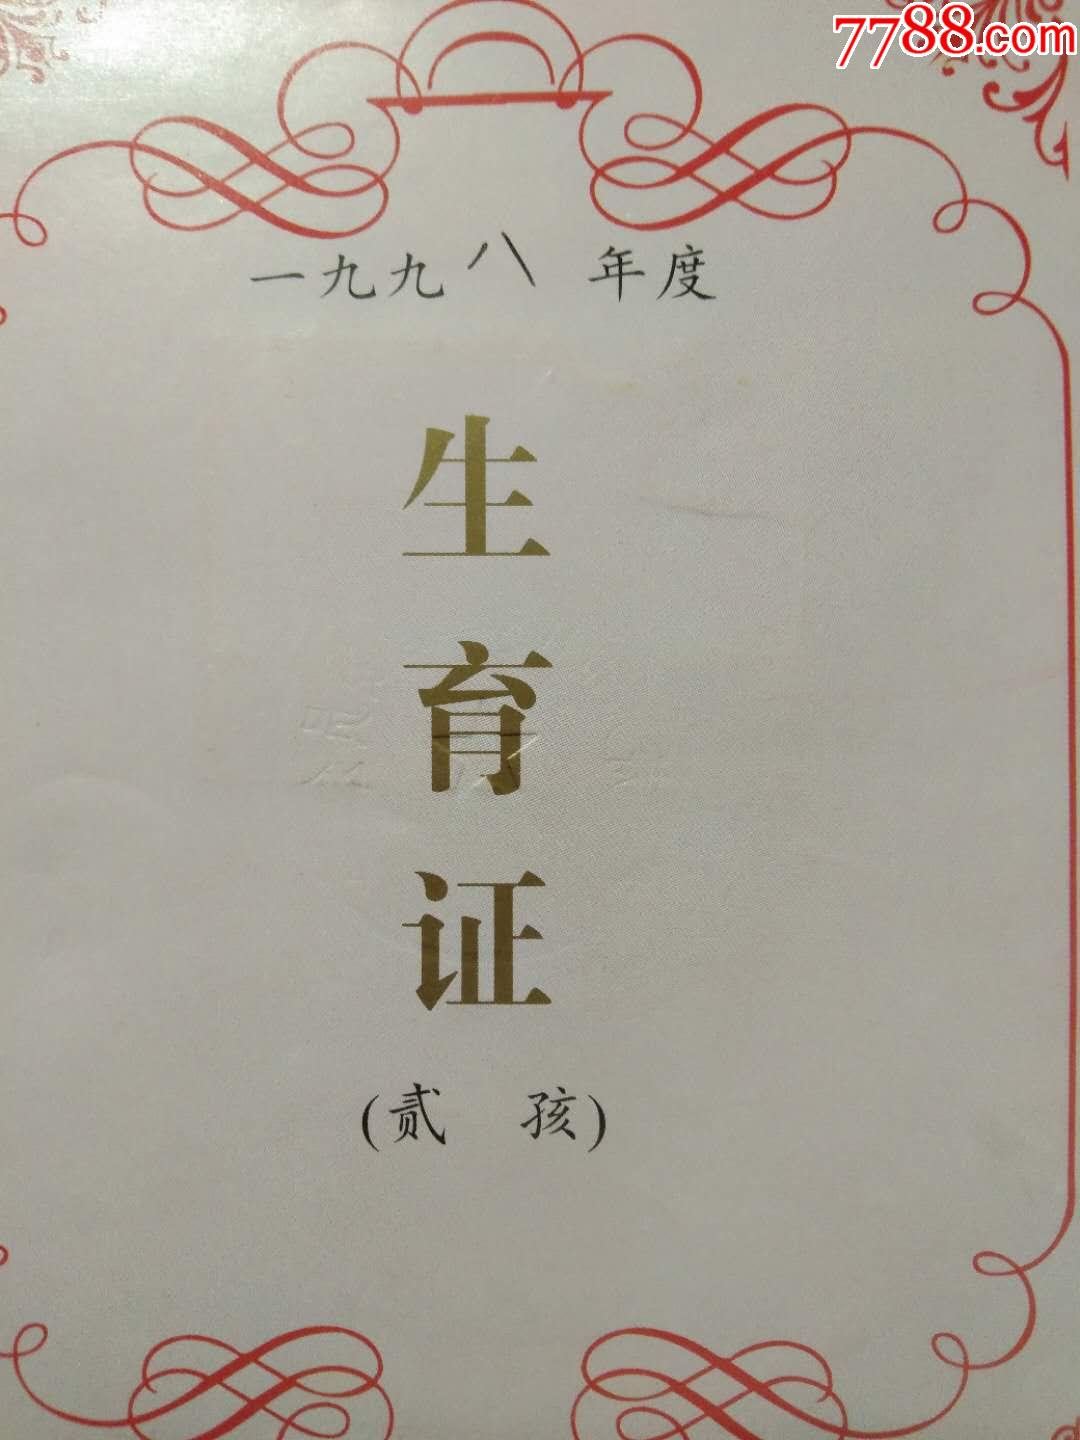 7788.com
一九九八 年度
生
育
证
(贰 孩)